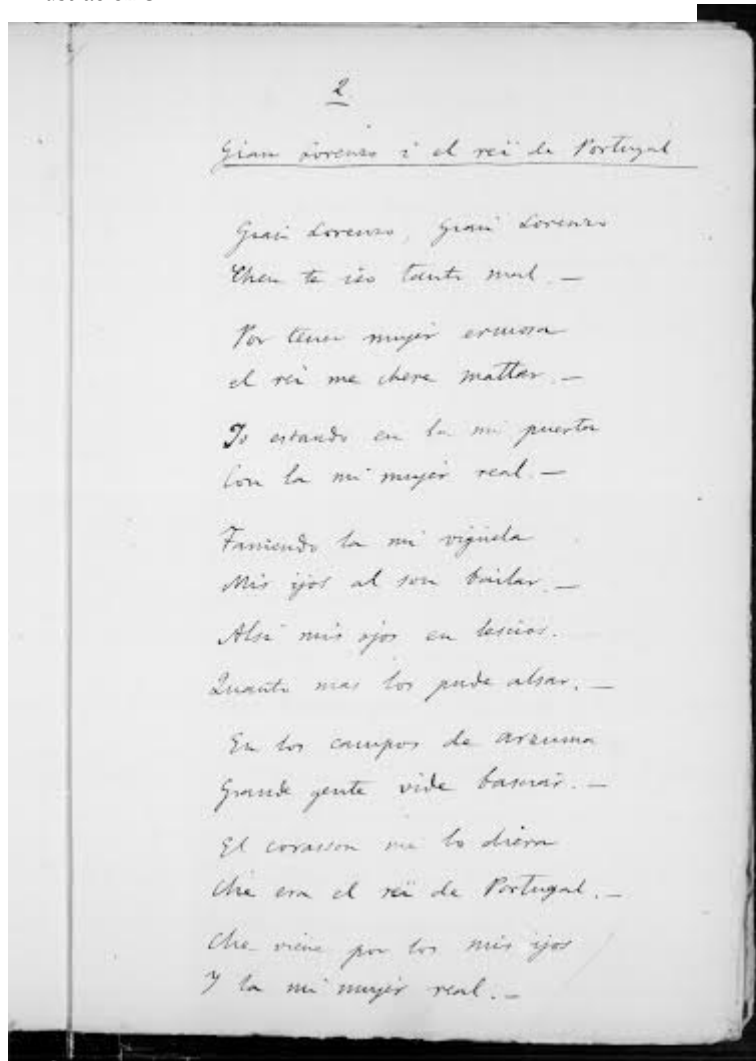 2
Gian Lorenzo i el reï de Portugal
Gian Lorenzo, Gian Lorenzo
Chen te izo tanto mal. —
Por tener mujer ermosa
el rei me chere mattar. —
Io estando en la mi puerta
Con la mi mujer real. —
Taniendo la mi vigüela
Mis ijos al son bailar. —
Alsi mis ojos en
Quanto mas los pude alsar. —
En los campos de arzuma
Grande gente vide —
El corasson me lo diera
Che era el reï de Portugal. —
Che viene por los mis ijos
Y la mi mujer real. —